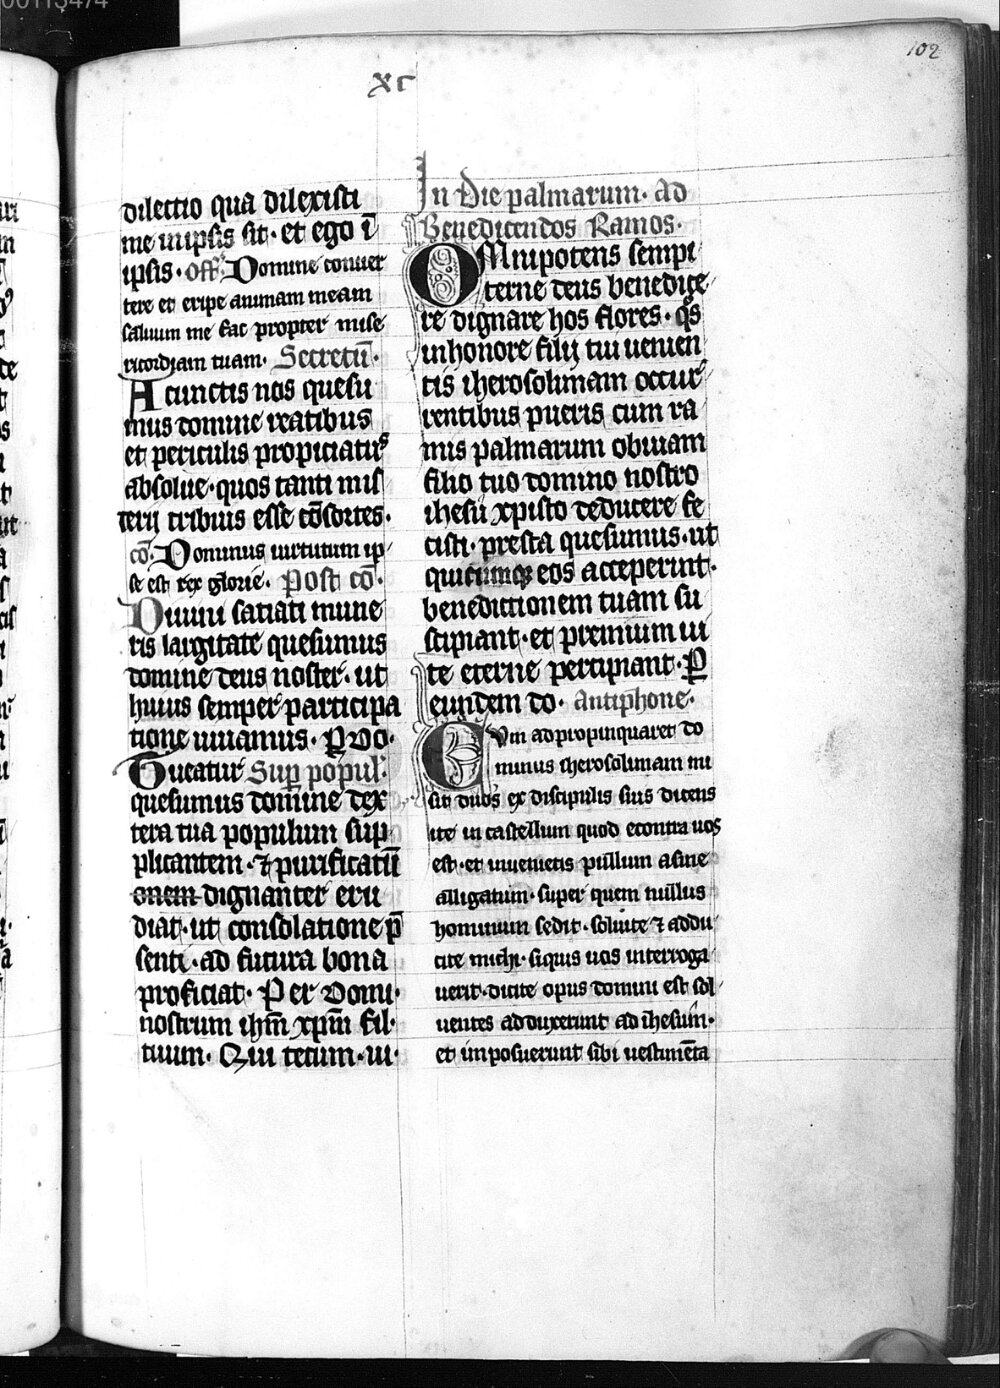 00113474
102
XC
dilectio qua dilexisti
me in ipsis sit · et ego ī
ipsis · off. Domine conuer
tere et eripe animam meam
saluum me fac propter mise
ricordiam tuam · Secretū ·
A cunctis nos quesu
mus domine reatibus
et periculis propiciatus
absolue · quos tanti mis
terii tribuis esse cōsortes ·
cō · Dominus uirtutum ip
se est rex glorie · Post cō ·
Diuini satiati mune
ris largitate quesumus
domine deus noster · ut
huius semper participa
tione uiuamus · P do ·
Tueatur Sup popul ·
quesumus domine dex
tera tua populum sup
plicantem · ⁊ purificatū
onem dignanter eru
diat · ut consolatione p̄
senti · ad futura bona
proficiat · Per domi ·
nostrum ihm̄ xpm̄ fil ·
tuum · Qui tecum · ui ·
In Die palmarum · ad
Benedicendos Ramos ·
OMnipotens sempi
terne deus benedice
re dignare hos flores · qs
in honore filij tui uenien
tis iherosolimam occur
rentibus pueris cum ra
mis palmarum obuiam
filio tuo domino nostro
ihesu xpisto deducere fe
cisti · presta quesumus · ut
quicumque eos acceperint ·
benedictionem tuam su
scipiant · et premium ui
te eterne percipiant · P
eundem do · Antiphone ·
CUm adpropinquaret do
minus iherosolimam mi
sit duos ex discipulis suis dicens
ite in castellum quod econtra uos
est · et inuenietis pullum asine
alligatum · super quem nullus
hominum sedit · soluite ⁊ addu
cite michi · siquis uos interroga
uerit · dicite opus domini est sol
uentes adduxerunt ad ihesum ·
et inposuerunt sibi uestimēta